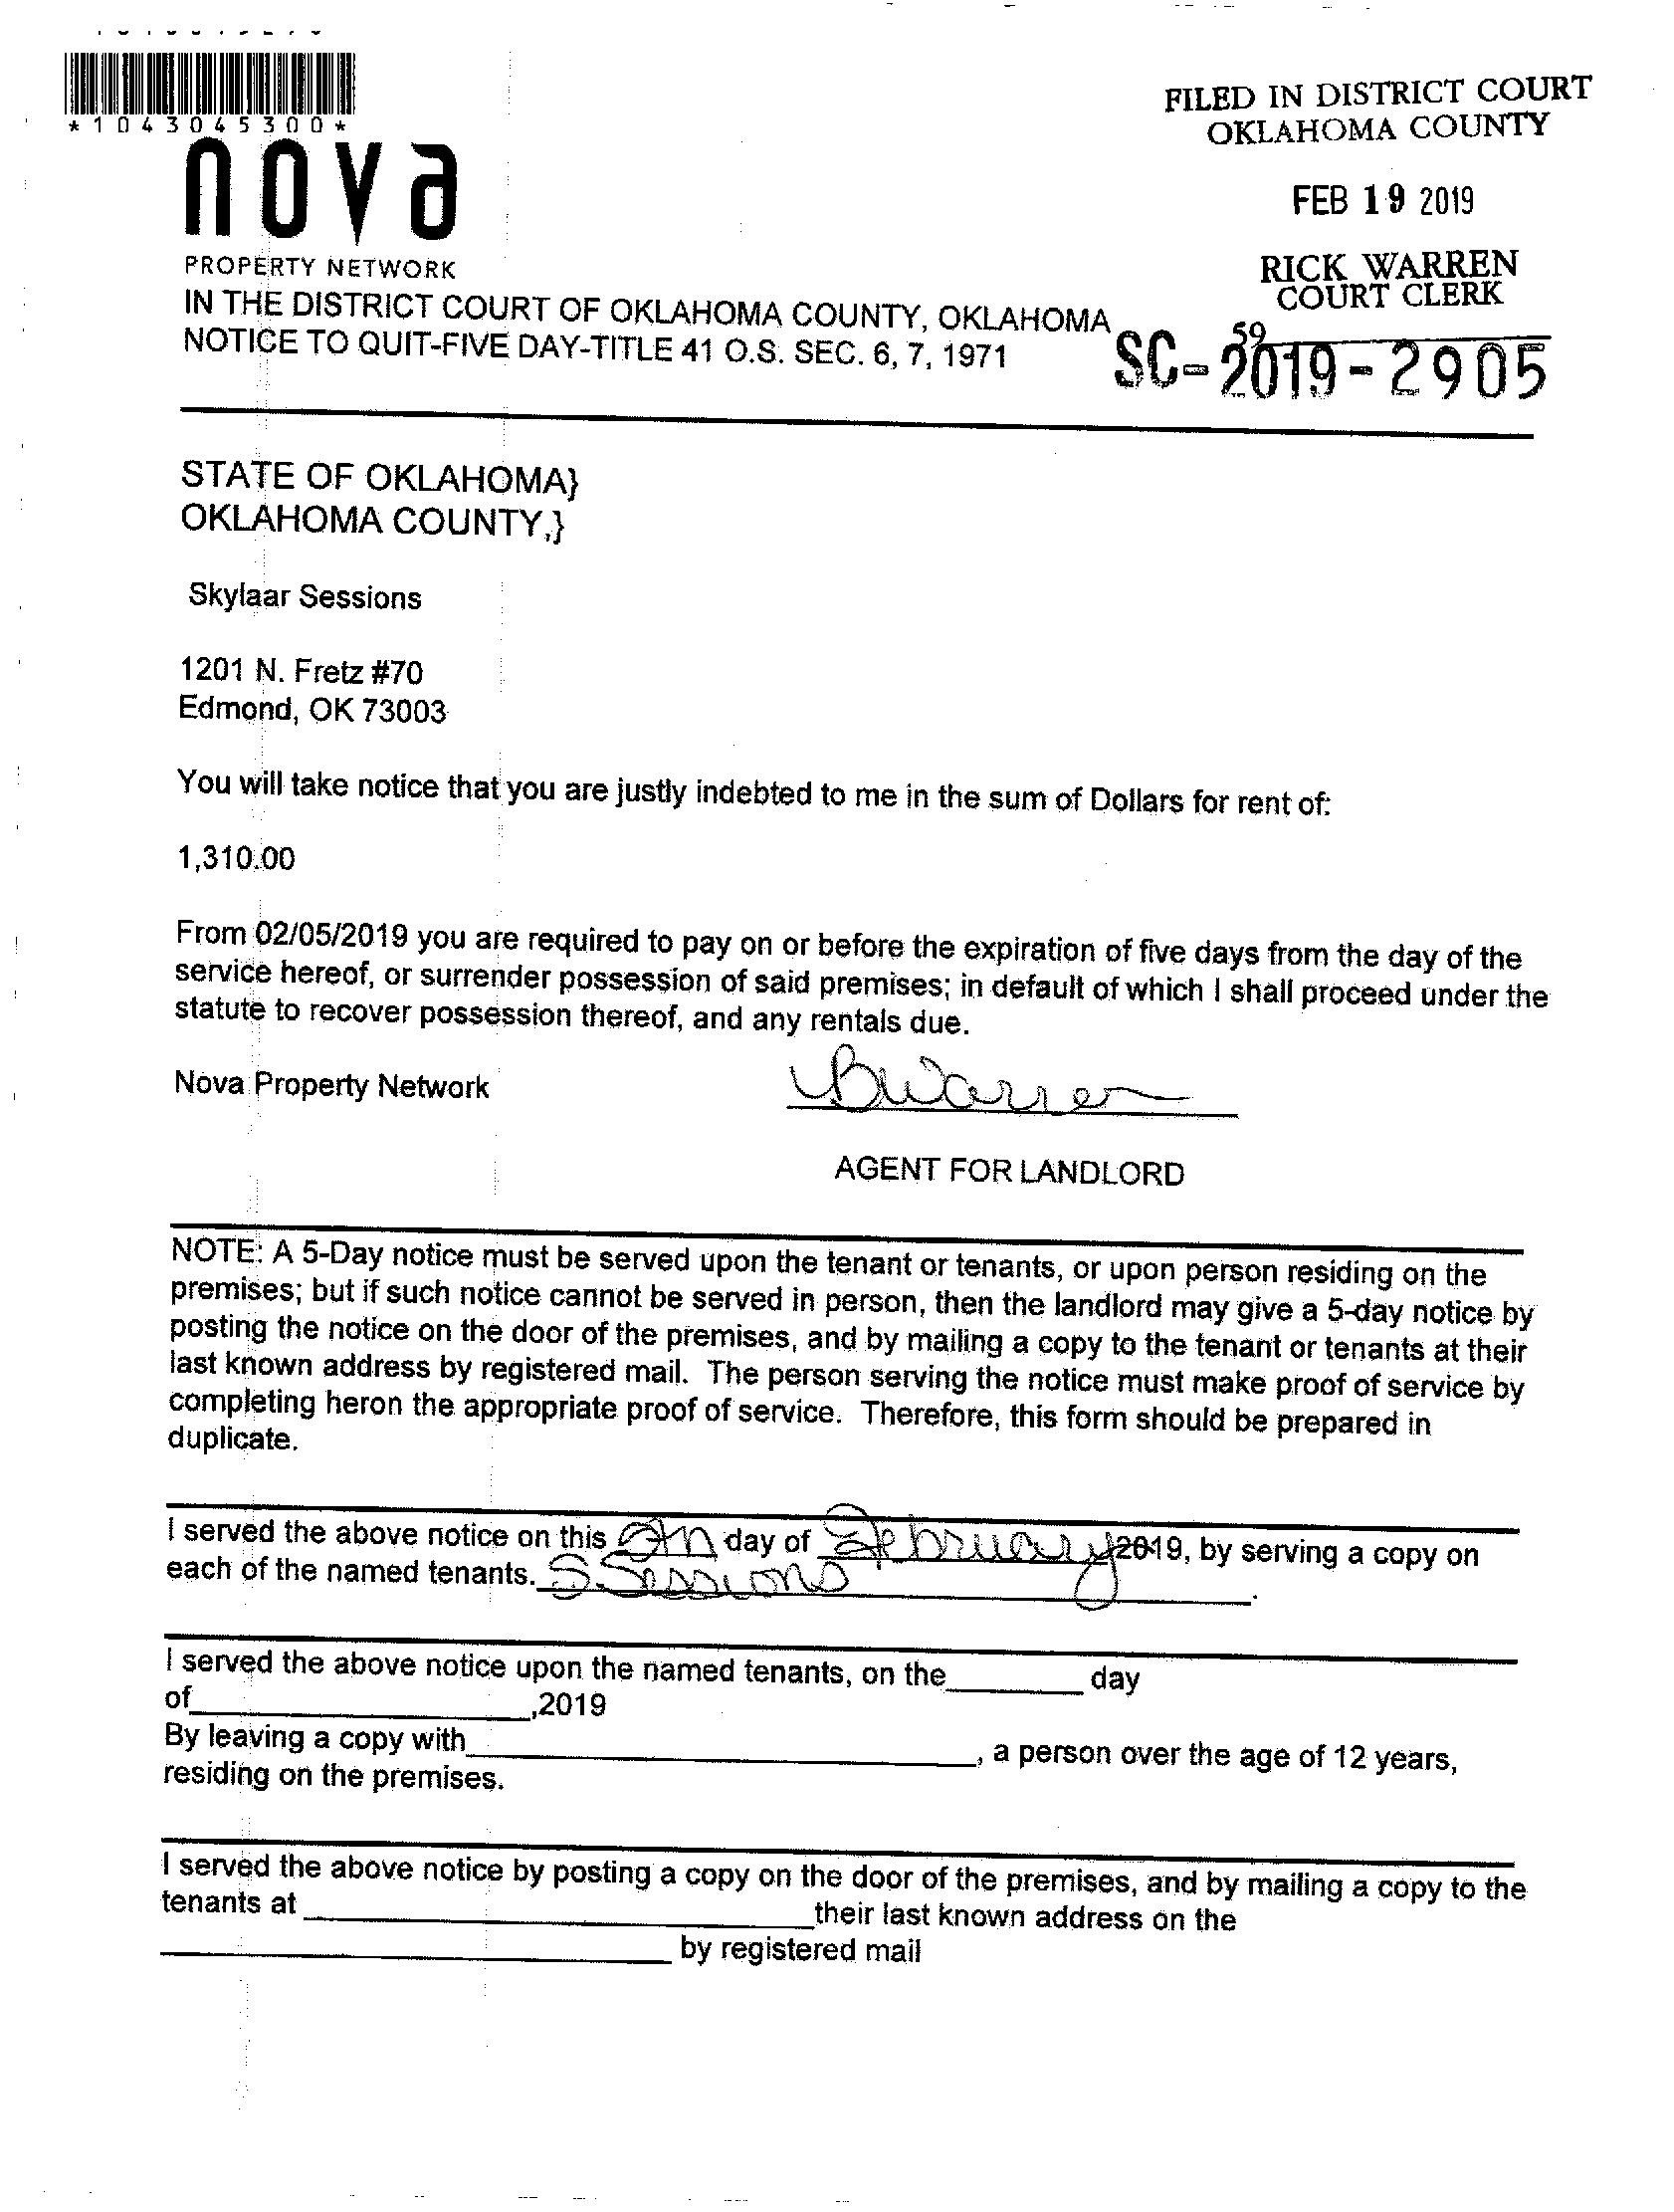 *1043045300*
nova
PROPERTY NETWORK
FILED IN DISTRICT COURT
OKLAHOMA COUNTY
FEB 19 2019
RICK WARREN
COURT CLERK
59
SC-2019-2905
IN THE DISTRICT COURT OF OKLAHOMA COUNTY, OKLAHOMA
NOTICE TO QUIT-FIVE DAY-TITLE 41 O.S. SEC. 6, 7, 1971
STATE OF OKLAHOMA}
OKLAHOMA COUNTY,}
Skylaar Sessions
1201 N. Fretz #70
Edmond, OK 73003
You will take notice that you are justly indebted to me in the sum of Dollars for rent of:
1,310.00
From 02/05/2019 you are required to pay on or before the expiration of five days from the day of the
service hereof, or surrender possession of said premises; in default of which I shall proceed under the
statute to recover possession thereof, and any rentals due.
Nova Property Network BWarren
AGENT FOR LANDLORD
NOTE: A 5-Day notice must be served upon the tenant or tenants, or upon person residing on the
premises; but if such notice cannot be served in person, then the landlord may give a 5-day notice by
posting the notice on the door of the premises, and by mailing a copy to the tenant or tenants at their
last known address by registered mail. The person serving the notice must make proof of service by
completing heron the appropriate proof of service. Therefore, this form should be prepared in
duplicate.
I served the above notice on this day of February 2019, by serving a copy on
each of the named tenants. S. Sessions.
I served the above notice upon the named tenants, on the day
of ,2019
By leaving a copy with , a person over the age of 12 years,
residing on the premises.
I served the above notice by posting a copy on the door of the premises, and by mailing a copy to the
tenants at their last known address on the
by registered mail